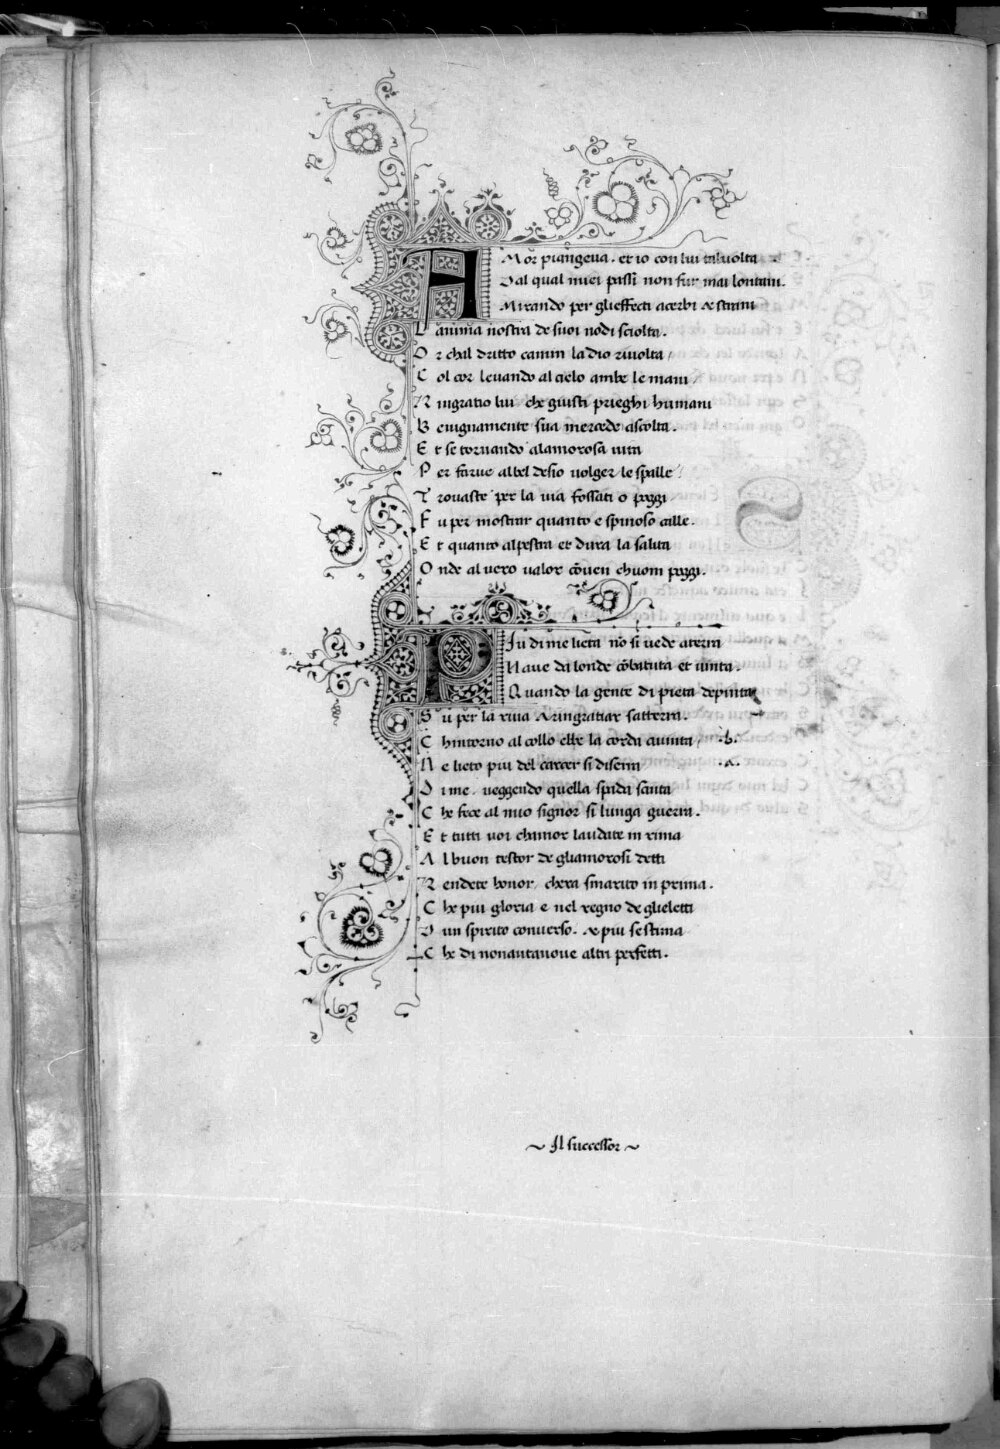 AMor piangeua. et io con lui taluolta
Dal qual miei passi non fur mai lontani.
Mirando per glieffecti acerbi & strani
L anima nostra de suoi nodi sciolta.
O r chal dritto camin la dio riuolta
C ol cor leuando al cielo ambe le mani
R ingratio lui che giusti prieghi humani
B enignamente sua mercede ascolta.
E t se tornando alamorosa uita
P er farue albel desio uolger le spalle
T rouaste per la uia fossati o poggi
F u per mostrar quanto e spinoso calle.
E t quanto alpestra et dura la salita
O nde al uero ualor cōuen chuom poggi.
Piu di me lieta nō si uede aterra
Naue da londe cōbatuta et uinta.
Quando la gente di pieta depinta
S u per la riua a ringratiar satterra.
C hintorno al collo ebbe la corda auinta .b.
N e lieto piu del carcer si diserra .a.
D i me. ueggendo quella spada scinta
C he fece al mio signor si lunga guerra.
E t tutti uoi chamor laudate in rima
A l buon testor de gliamorosi detti
R endete honor/ chera smarito in prima.
C he piu gloria e nel regno de glieletti
D un spirito conuerso. & piu sestima
C he di nonantanoue altri perfetti.
~ Il successor ~